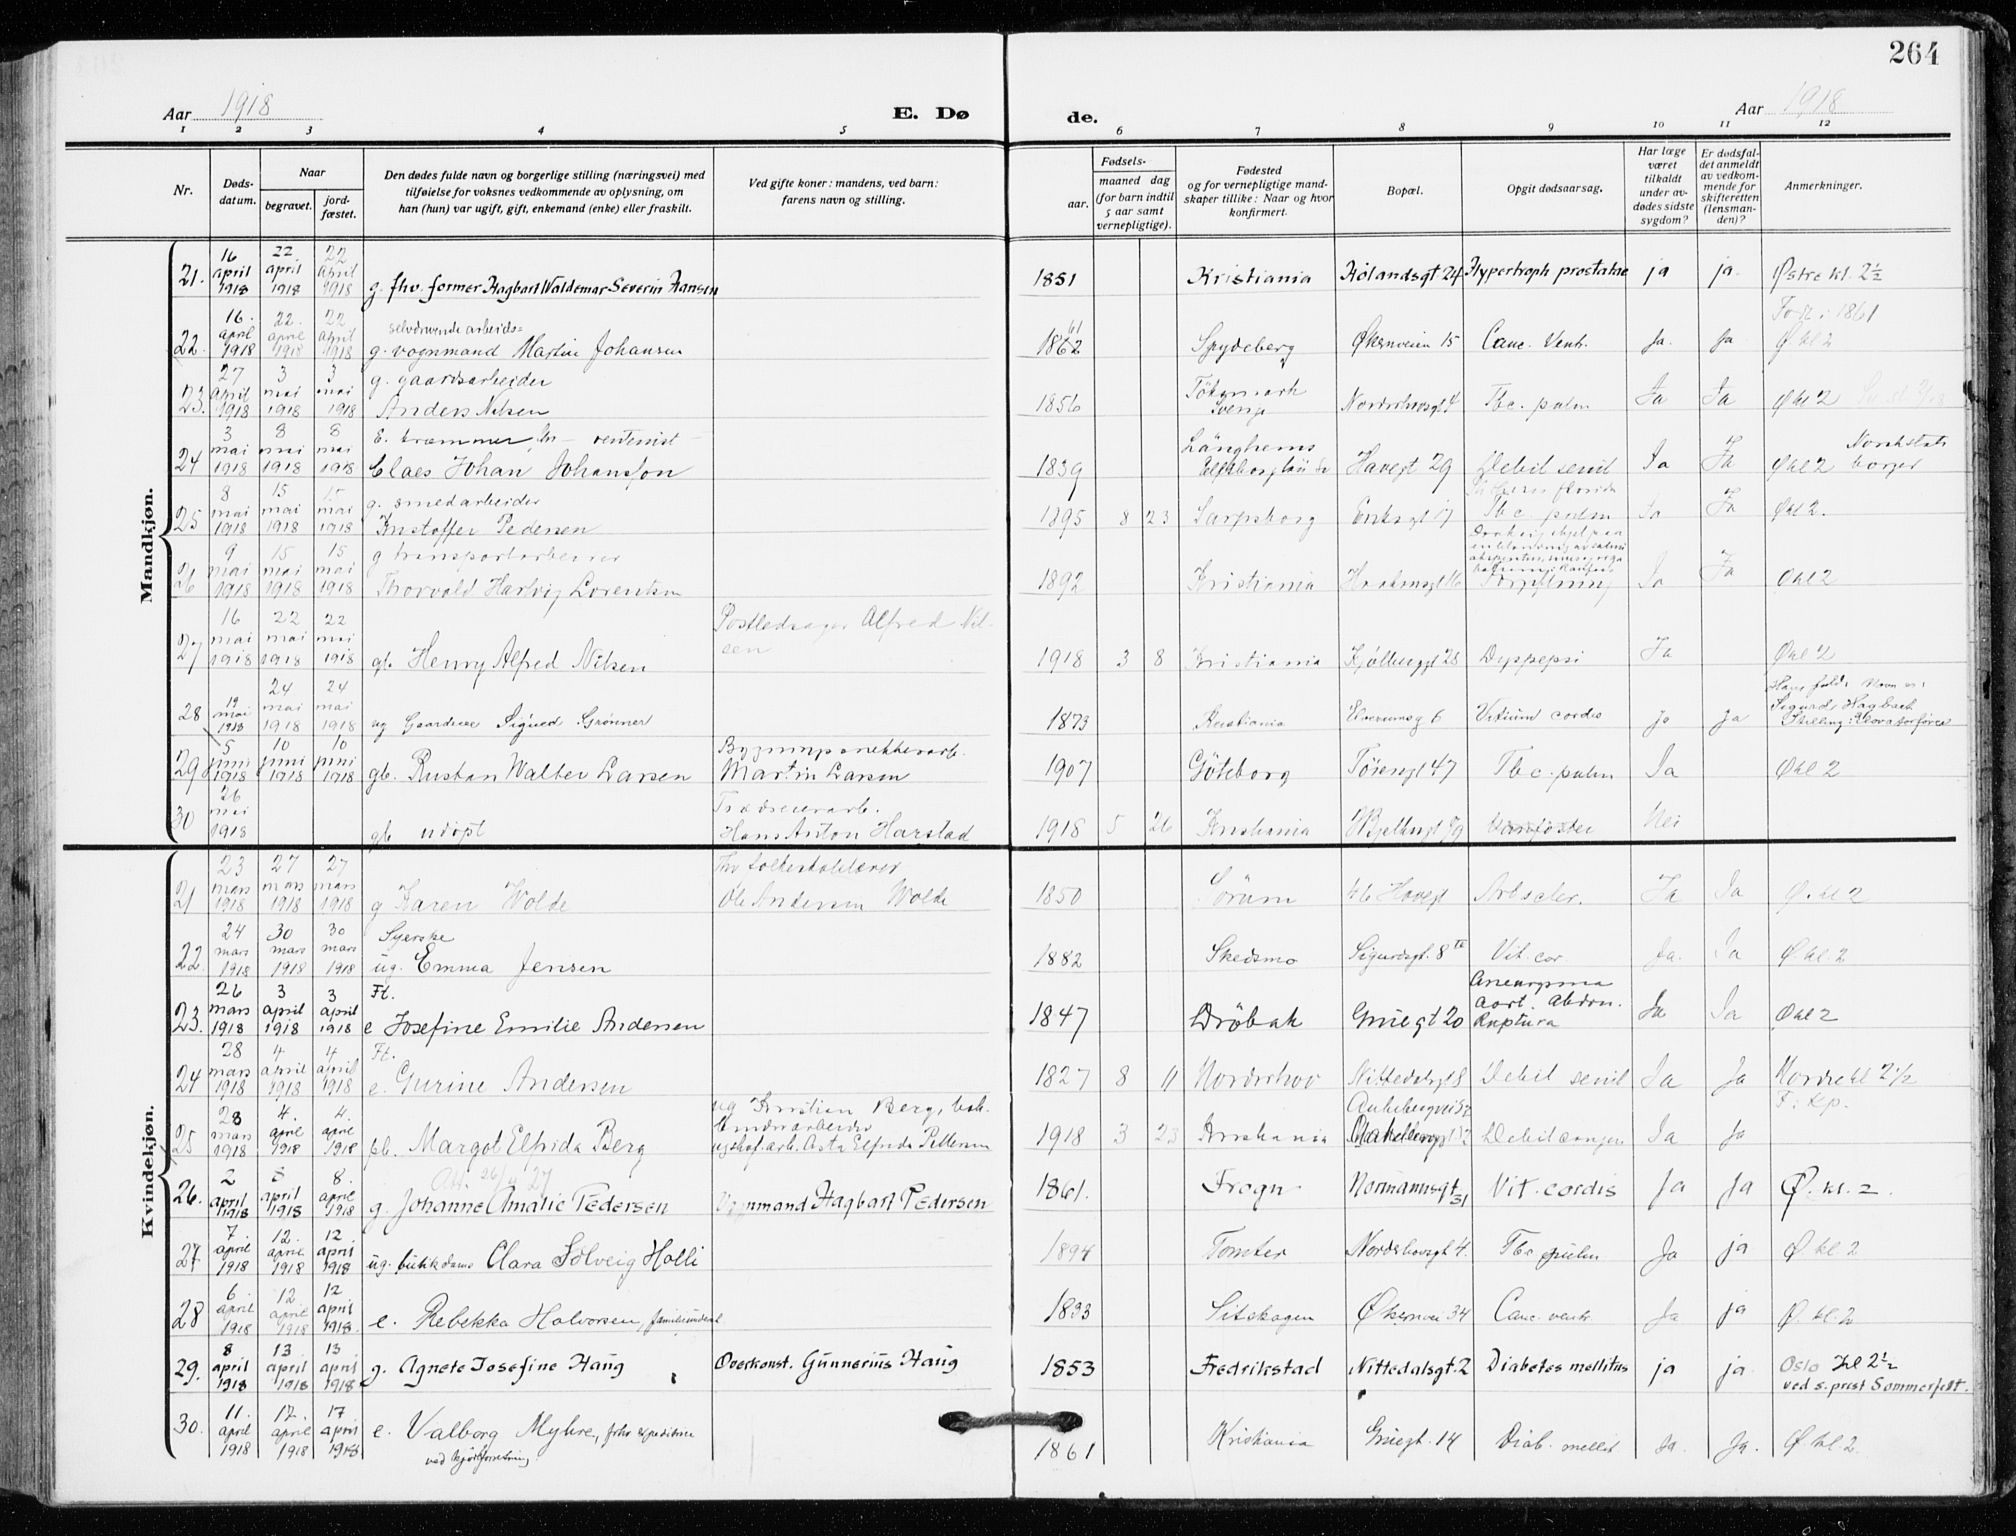 264
Aar 1918
E. Dø de.
Aar 1918
1 2 3 4 5 6 7 8 9 10 11 12
Nr.
Døds-
datum.
Naar
begravet.
jord-
fæstet.
Den dødes fulde navn og borgerlige stilling (næringsvei) med
tilføielse for voksnes vedkommende av oplysning, om
han (hun) var ugift, gift, enkemand (enke) eller fraskilt.
Ved gifte koner: mandens, ved barn:
farens navn og stilling.
Fødsels-
aar.
maaned dag
(for barn indtil
5 aar samt
vernepligtige).
Fødested
og for vernepligtige mand-
skaper tillike: Naar og hvor
konfirmert.
Bopæl.
Opgit dødsaarsag.
Har læge
været
tilkaldt
under av-
dødes sidste
sygdom?
Er dødsfal-
det anmeldt
av vedkom-
mende for
skifteretten
(lensman-
den)?
Anmerkninger.
Mandkjøn.
21. 16 april 1918 22 april 1918 22 april 1918 g. fhv. former Hagbart Waldemar Severin Hansen 1851 Kristiania Hølandsgt 24 Hypertroph prostatae ja ja. Østre kl. 2½
22. 16. april 1918 22. april 1918 22 april 1918 selvdrivende arbeids=
g. vognmand Martin Johansen 1862 61 Spydeberg Økernveien 15 Canc. Ventr. Ja. Ja Født i 1861
Ø kl 2
23. 27 april 1918 3 mai 1918 3 mai 1918 g. gaardsarbeider
Anders Nilsen 1856 Töksmark
Sverige Nordrehovsgt 4 Tbc. pulm Ja Ja Ø kl 2
24 3 mai 1918 8 mai 1918 8 mai 1918 E. kræmmer, rentenist
Claes Johan Johansson 1839 Länghems
Havegt 29 Debil senil Ja Ja Ø kl 2 Norsk stats
borger
25 8 mai 1918 15 mai 1918 15 mai 1918 g. smedarbeider
Kristoffer Pedersen 1895 8 23 Sarpsborg Eriksgt 17 Tbc. pulm Ja Ja Ø kl 2.
26 9 mai 1918 15 mai 1918 15 mai 1918 g transportarbeider
Thorvald Hartvig Lorentsen 1892 Kristiania Ja Ja Ø kl 2
27 16 mai 1918 22 mai 1918 22 mai 1918 gb. Henry Alfred Nilsen Postledsager Alfred Nil-
sen 1918 3 8 Kristiania Kjølberggt 28 Dyspepsi Ja Ø kl 2
28 19 mai 1918 24 mai 1918 24 mai 1918 ug Gaardeier Sigurd Grønner 1873 Kristiania Elverumsg 6 Vitium cordis ja ja Hans fulde Navn er:
Sigurd Hagbart
Stilling: Elevatorfører
29 5 juni 1918 10 juni 1918 10 juni 1918 gb. Rustan Walter Larsen Martin Larsen 1907 Göteborg Töiengt 47 Tbc. pulm Ja Ø kl 2
30 26 mai 1918 gb udøpt Hans Anton Harstad 1918 5 26 Kristiania Nei
Kvindekjøn.
21 23 mars 1918 27 mars 1918 27 mars 1918 g Karen Wolde Fhv folkeskolelærer
Ole Andersen Wolde 1850 Sørum 46 Havegt Art. scler. Ja Ja Ø. kl 2
22. 24 mars 1918 30 mars 1918 30 mars 1918 Syerske
ug. Emma Jensen 1882 Skedsmo Sigurdsgt. 8 Vit. cor Ja. Ja Ø. kl. 2
23. 26 mars 1918 3 april 1918 3 april 1918 Ft.
e Josefine Emilie Andersen 1847 Dröbak Gruegt 20 Aneurysma
aort. abdom.
Ruptura Ja Ja Ø kl 2
24 28 mars 1918 4 april 1918 4 april 1918 Ft.
e. Gurine Andersen 1827 8 11 Norderhov Nittedalsgt 8 Debil senil Ja Ja Nordre kl 2½
25 28 mars 1918 4. april 1918 4. april 1918 pb. Margot Elfrida Berg ug Kristian Berg,
Asta Elfrida Pettersen 1918 3 23 Kristiania Debil congen Ja Ja F. kp.
26. 2 april 1918 8 april 1918 8. april 1918 Att. 26/4 27
g. Johanne Amalie Pedersen Vognmand Hagbart Pedersen 1861. Frogn Normannsgt 31 Vit. cordis Ja Ja Ø. kl. 2.
27 7. april 1918 12. april 1918 12. april 1918 ug. butikdame Clara Solveig Holli 1894 Tomter Nordrehovsgt 4. Tbc pulm Ja ja Ø. kl 2
28 6. april 1918 12 april 1918 12 april 1918. e. Rebekka Halvorsen, 1833 Sitskogen Økernvei 34 Canc. ventr Ja ja Ø. kl. 2
29. 8 april 1918 13. april 1918 13. april 1918 g. Agnete Josefine Haug Overkonst. Gunnerius Haug 1853 Fredrikstad Nittedalsgt. 2 Diabetes mellitus ja ja. Oslo kl 2½
ved s. prest Sommerfelt.
30. 11. april 1918 17. april 1918 17 april 1918 e. Valborg Myhre, fhv expeditrice
ved kjøtforretning 1861 Kristiania Gruegt. 14 Diab. mellit Ja. Ja. Ø kl 2